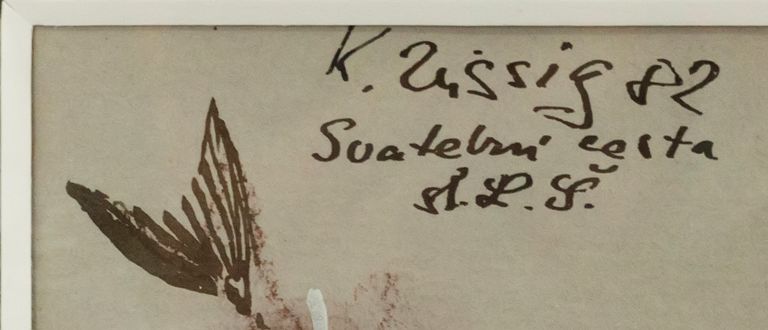 K. Züssig 82
Svatební cesta
A. L. Š.